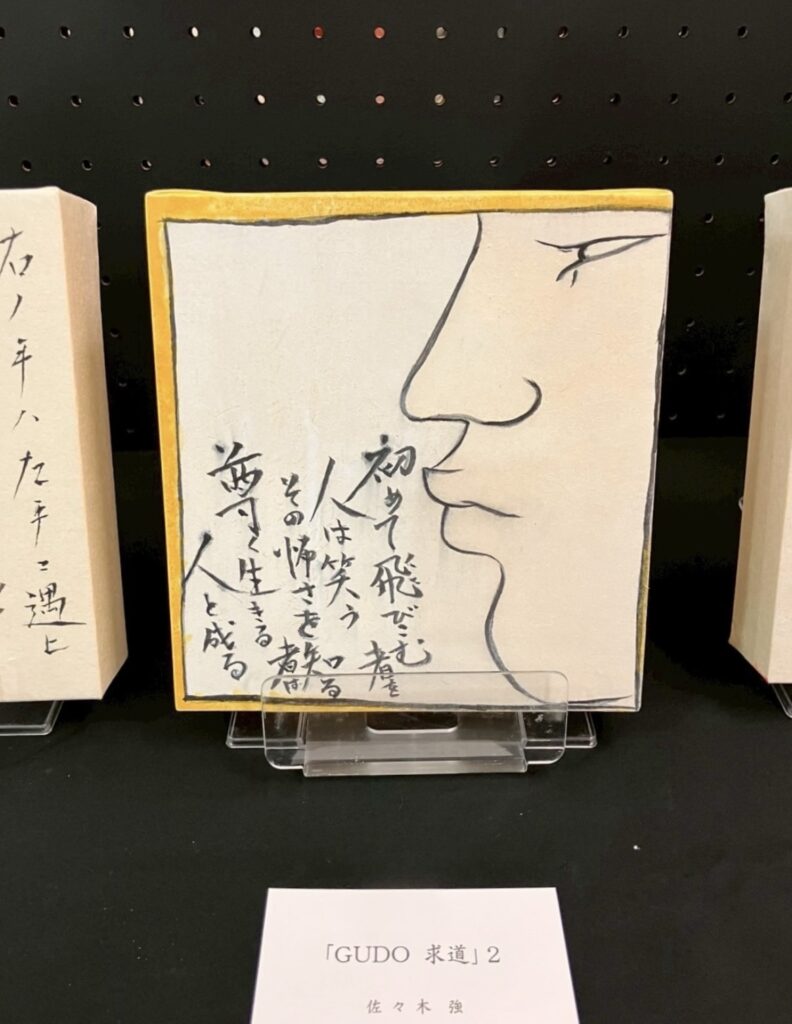 初めて飛びこむ者を
人は笑う
その怖さを知る者は
尊く生きる
人と成る
「GUDO 求道」2
佐々木 強